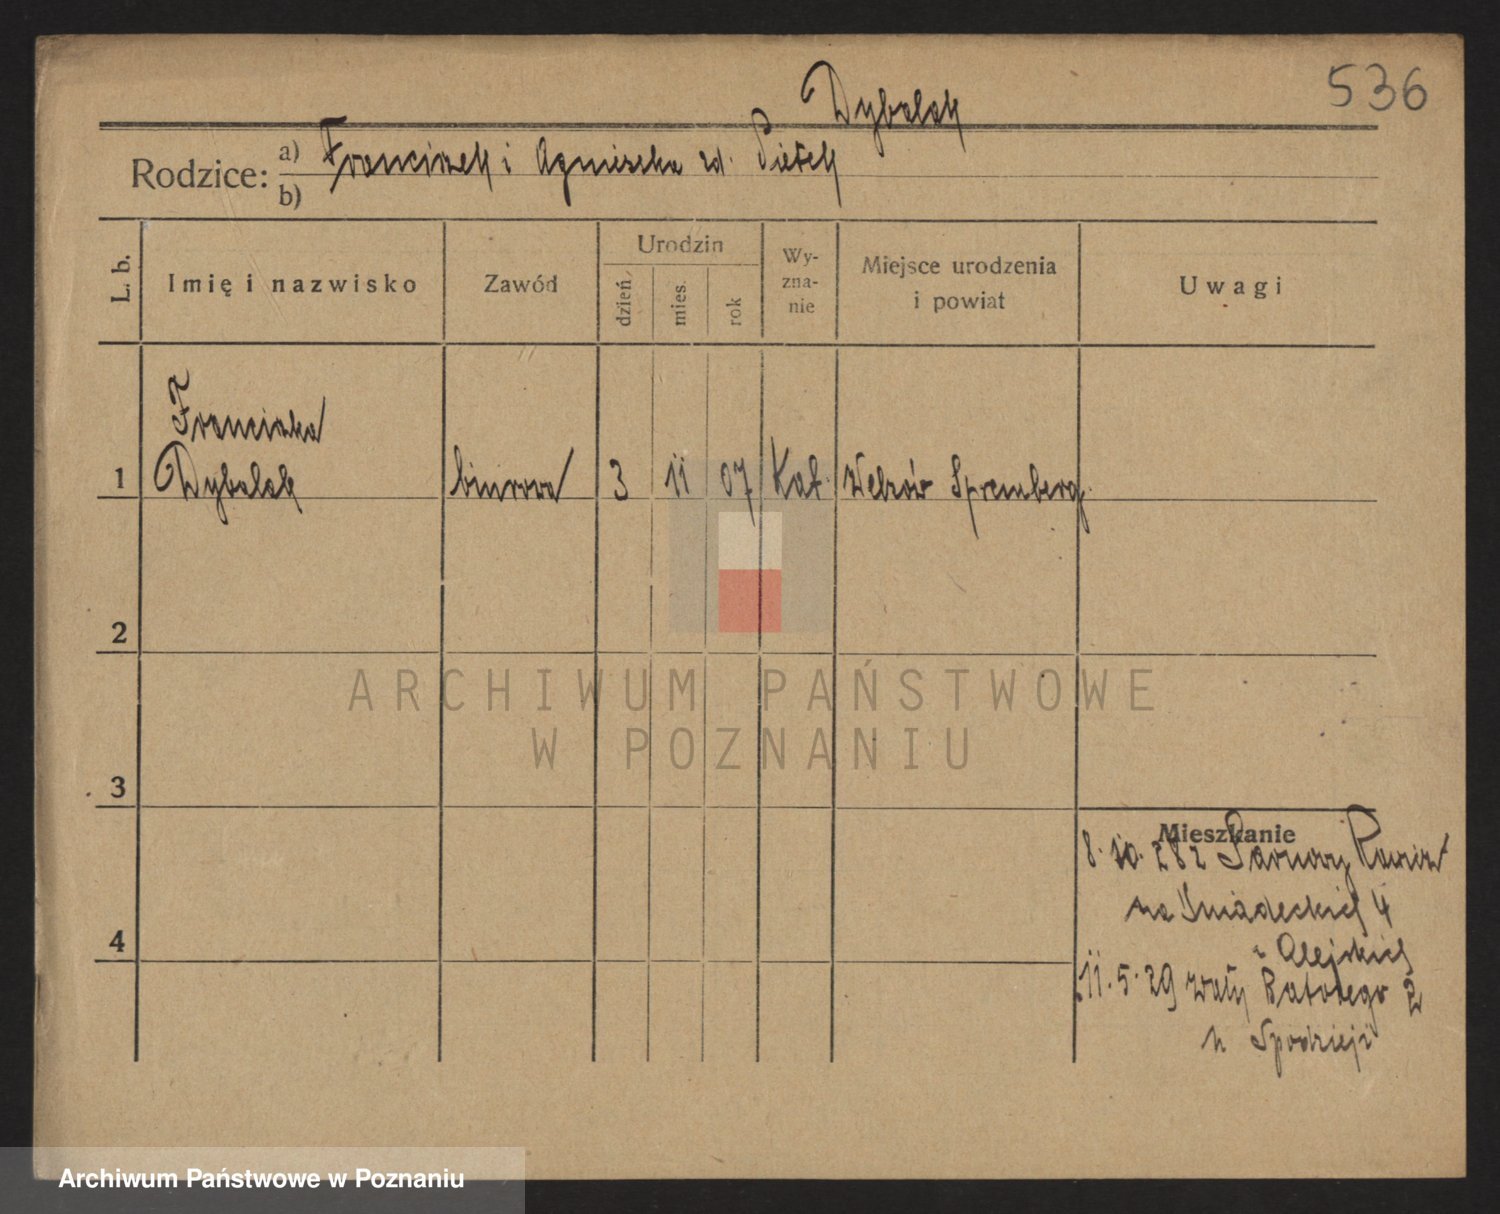 536
Dybalak
Rodzice: a) Franciszek i Agnieszka zd. Piełek
b)
L. b.
Imię i nazwisko
Zawód
Urodzin
dzień
mies.
rok
Wy-
zna-
nie
Miejsce urodzenia
i powiat
Uwagi
Franciszka
1 Dybalak biurowa 3 11 07 Kat. Welzów Spremberg.
2
ARCHIWUM PAŃSTWOWE
W POZNANIU
3
Mieszkanie
8. 10. 28 z Rawicz
na Śniadeckich 4
4
11. 5. 29 Wały Batorego 2
u Spodzieji
Archiwum Państwowe w Poznaniu